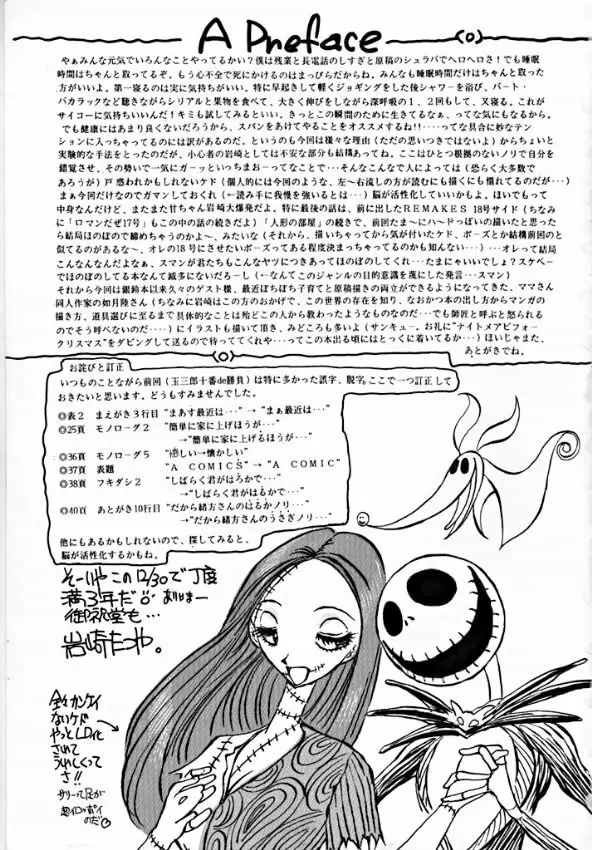 A Preface
やぁみんな元気でいろんなことやってるかい？僕は残業と長電話のしすぎと原稿のシュラバでヘロヘロさ！でも睡眠
時間はちゃんと取ってるぞ。もう心不全で死にかけるのはまっぴらだからね。みんなも睡眠時間だけはちゃんと取った
方がいいよ。第一寝るのは実に気持がいい。特に早起きして軽くジョギングをした後シャワーを浴び、バート・
バカラックなど聴きながらシリアルと果物を食べて、大きく伸びをしながら深呼吸の１、２回もして、又寝る。これが
サイコーに気持ちいいんだ！キミも試してみるといい。きっとこの瞬間のために生きてるなぁ、ってな気にもなるから。
でも健康にはあまり良くないだろうから、スパンをあけてやることをオススメするね!!‥‥って具合に妙なテン
ションに入っちゃってるのには訳があるのだ。というのも今回は様々な理由（ただの思いつきではないよ）からちょいと
実験的な手法をとったのだが、小心者の岩崎としては不安な部分も結構あってね。ここはひとつ根拠のないノリで自分を
錯覚させ、その勢いで一気にガーッといっちまおーってなことで‥‥そんなこんなで人によっては（恐らく大多数で
あろうが）戸惑われかもしれないケド（個人的には今回のような、左〜右流しの方が読むにも描くにも慣れてるのだが…）
まぁ今回だけなのでガマンしておくれ（←読み手に我慢を強いるとは…）脳が活性化していいかもよ。ほいでもって
中身なんだけど、またまた甘ちゃん岩崎大爆発だよ。特に最後の話は、前に出したＲＥＭＡＫＥＳ 18号サイド（ちなみ
に「ロマンだぜ17号」もこの中の話の続きだよ）「人形の部屋」の続きで、前回たま〜にハードっぽいの描いたと思った
ら結局ほのぼので締めちゃうのかよ〜、みたいな（それから、描いちゃってから気が付いたケド、ポーズとか結構前回のと
似てるのがあるな〜、オレの18号にさせたいポーズってある程度決まっちゃってるのかも知んない…）…オレって結局
こんなんなんだよなぁ、スマンが君たちもこんなヤツにつきあってほのぼのしてくれ…たまにゃいいでしょ？スケベー
でほのぼのしてる本なんて滅多にないだろーし（←なんてこのジャンルの目的意識を蔑にした発言…スマン）
それから今回は銀鈴本以来久々のゲスト様、最近ぼちぼち子育てと原稿描きの両立ができるようになってきた、ママさん
同人作家の如月陸さん（ちなみに岩崎はこの方のおかげで、この世界の存在を知り、なおかつ本の出し方からマンガの
描き方、道具選びに至るまで具体的なことは殆どこの人から教わったようなものなのだ…でも師匠と呼ぶと怒られる
のでそう呼べないのだ‥‥）にイラストも描いて頂き、みどころも多いよ（サンキュー。お礼に“ナイトメアビフォー
クリスマス”をダビングして送るので待っててくれや…ってこの本出る頃にはとっくに着いてるか…）ほいじゃまた、
あとがきでね。
お詫びと訂正
いつものことながら前回（玉三郎十番de勝負）は特に多かった誤字、脱字。ここで一つ訂正して
おきたいと思います。どうもすみませんでした。
◎表２ まえがき３行目 “まあす最近は…” → “まぁ最近は…”
◎25頁 モノローグ２ “簡単に家に上げほうが…”
→“簡単に家に上げるほうが…”
◎36頁 モノローグ５ “嬉しい→懐かしい”
◎37頁 表題 “Ａ ＣＯＭＩＣＳ” → “Ａ ＣＯＭＩＣ”
◎38頁 フキダシ２ “しばらく君がはろかで…”
→“しばらく君がはるかで…”
◎40頁 あとがき10行目 “だから緒方さんのはるかノリ…”
→“だから緒方さんのうさぎノリ…”
他にもあるかもしれないので、探してみると、
脳が活性化するかもね。
そーいやこの12/30で丁度
満3年だ
岩崎たつや。
全々カンケイ
ないケド
やっとLD化
されて
うれしくって
さ!!
サリーって足が